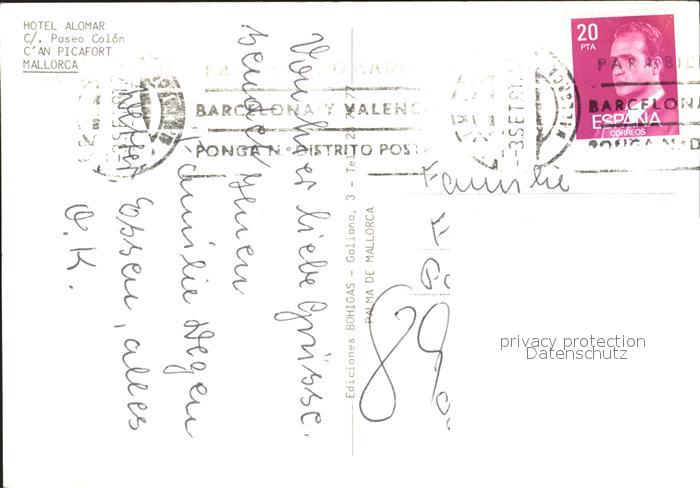 HOTEL ALOMAR
C/. Paseo Colón
C'AN PICAFORT
MALLORCA
BARCELONA Y VALENC
PONGA N.º DISTRITO POSTA
-3 SET
20
PTA
ESPAÑA
CORREOS
PARA
BARCELONA
PONGA N.º D
Von hier liebe Grüsse.
sendet Ihnen
Familie Degen
Wetter, Essen, alles
O.K.
Ediciones BOHIGAS - Galiana, 3 - Tel.
PALMA DE MALLORCA
Familie
privacy protection
Datenschutz